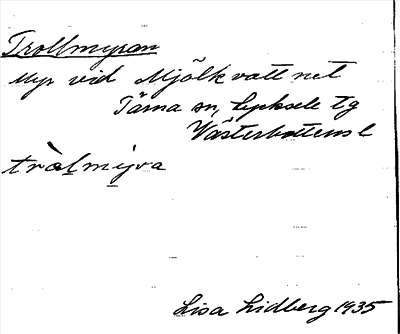 Trollmyran
Myr vid Mjölkvattnet
Tärna sn, Lycksele tg
Västerbottens l
tràlmyra
Lisa Lidberg 1935